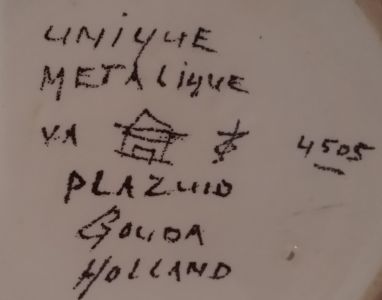 UNIQUE
METALIQUE
VA 4505
PLAZUID
GOUDA
HOLLAND